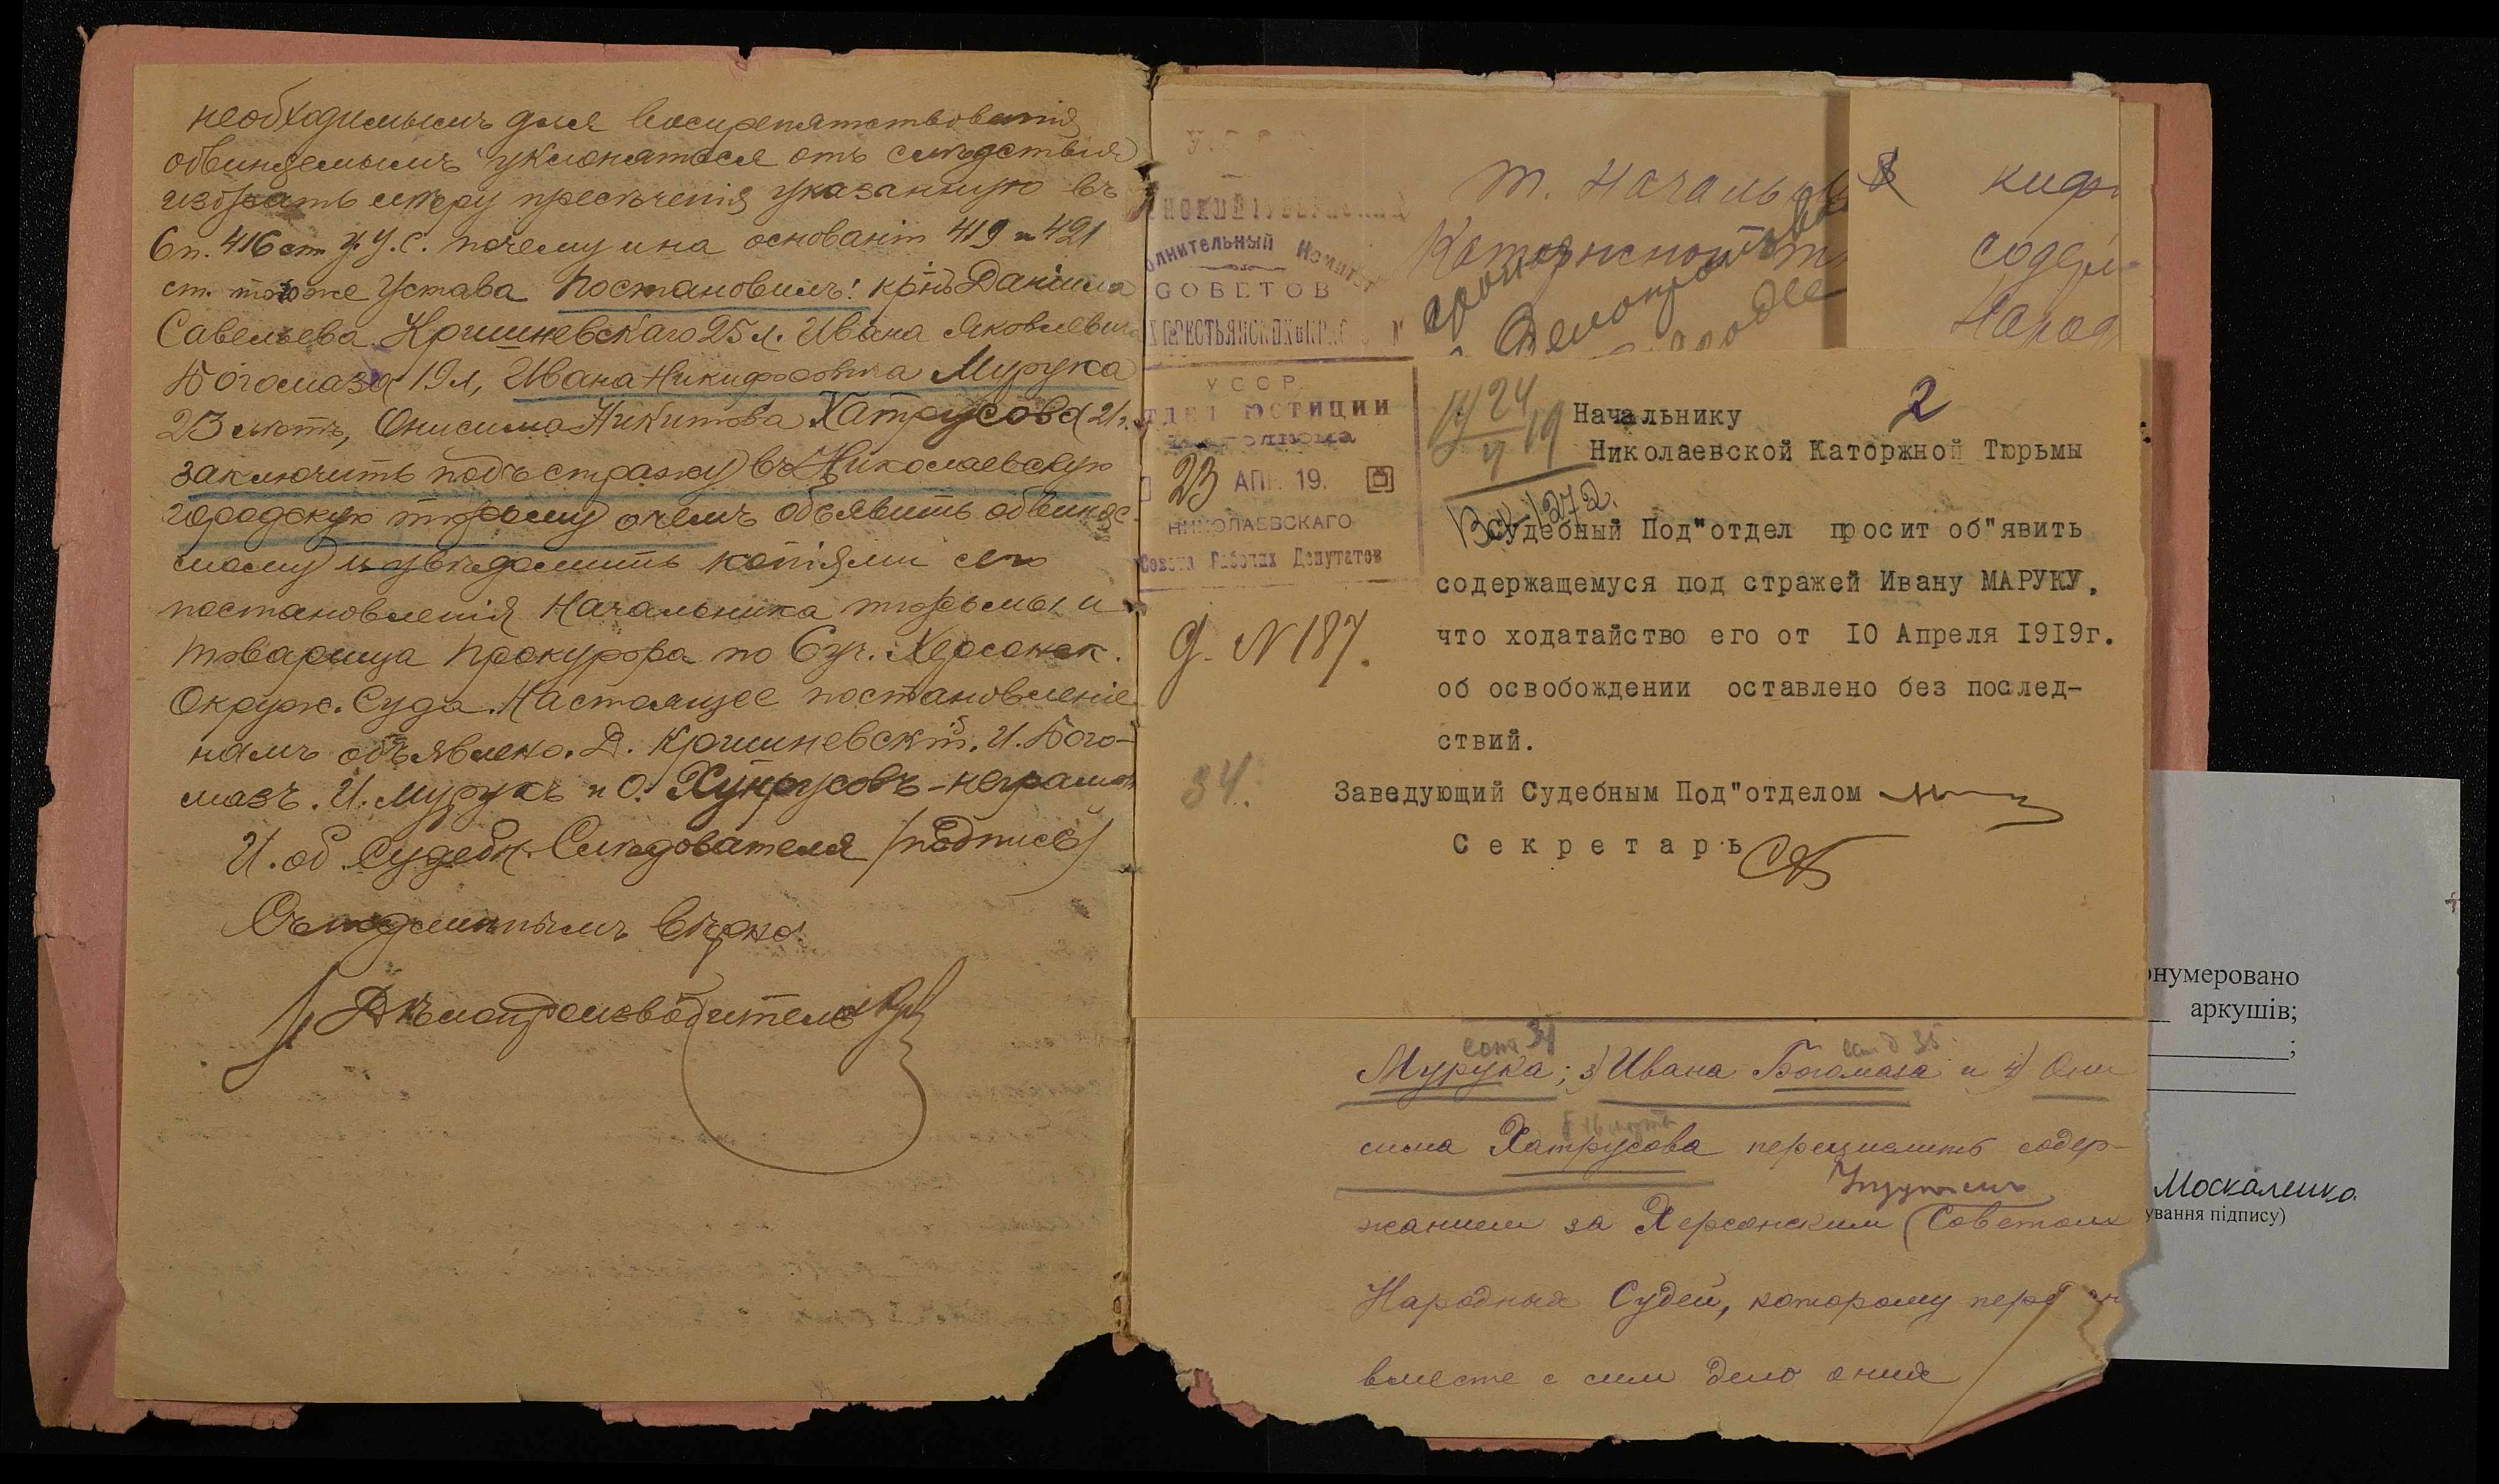 необходимымъ для воспрепятствованія
обвиняемымъ уклоняться отъ слѣдствія
избрать мѣру пресѣченія указанную въ
6 п. 416 ст. У. У. С. почему и на основаніи 419 и 421
ст. того же Устава Постановилъ: кр-нъ Даніила
Савельева Кришневскаго 25 л. Ивана Яковлевича
Богомаза 19 л, Ивана Никифоровича Мурука
23 лѣтъ, Онисима Никитова Хатрусова 21 г.
заключить подъ стражу въ Николаевскую
городскую тюрьму о чемъ объявить обвиняе-
мому и увѣдомить копіями сего
постановленія Начальника тюрьмы и
Товарища Прокурора по 6 уч. Херсонск.
Окружн. Суда. Настоящее постановленіе
намъ объявлено. Д. Кришневскій, И. Бого-
мазъ. И. Мурукъ и О. Хутрусовъ - неграмот
И. об. Судебн. Слѣдователя /подпись/
Съ подлиннымъ вѣрно
Дѣлопроизводитель
олнительный Комитет
СОВЕТОВ
т. Начальн
Каторжной т
кифо
содерж
Народ
УССР
ТДЕЛ ЮСТИЦИИ
23 АПР. 19.
НИКОЛАЕВСКАГО
Совета Рабочих Депутатов
д. N 187.
34.
24
2
Начальнику
Николаевской Каторжной Тюрьмы
Вх 1272.
Судебный Под"отдел просит об"явить
содержащемуся под стражей Ивану МАРУКУ,
что ходатайство его от 10 Апреля 1919г.
об освобождении оставлено без послед-
ствий.
Заведующий Судебным Под"отделом
Секретарь
Мурука; 3) Ивана Богомаза и 4) Они
сима Хатрусова перечислить содер-
жанием за Херсонским (Советом
Народных Судей, которому
вместе с сим дело о них
онумеровано
аркушів;
Москаленко
ування підпису)